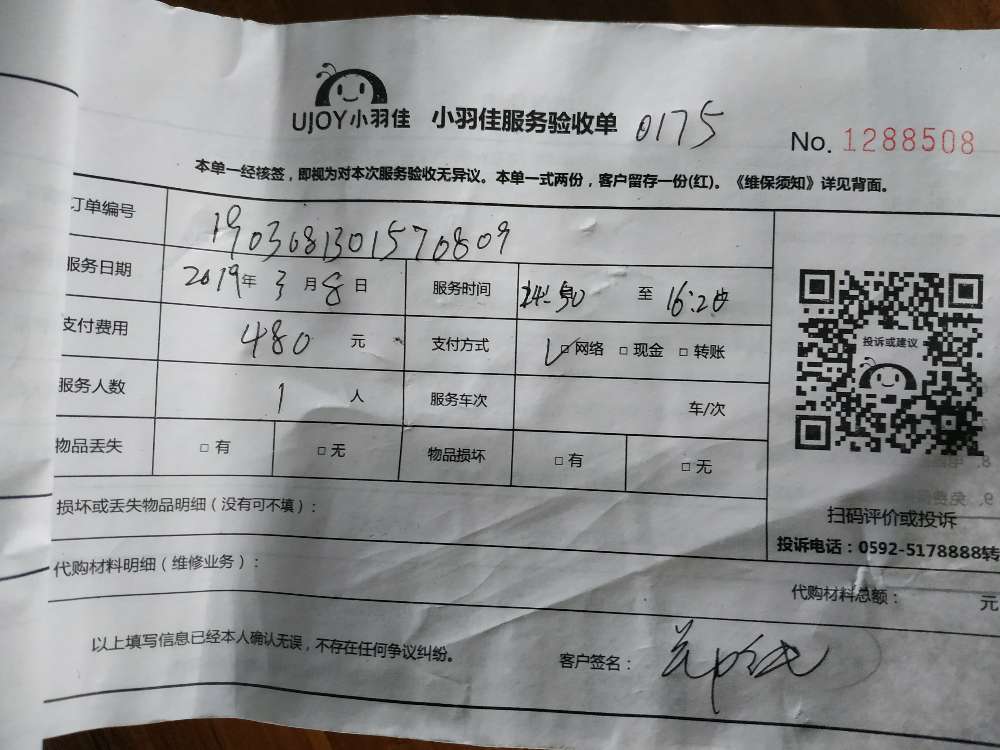 UJOY小羽佳 小羽佳服务验收单 0175
No. 1288508
本单一经核签，即视为对本次服务验收无异议。本单一式两份，客户留存一份(红)。《维保须知》详见背面。
订单编号 190308130157080​9
服务日期 2019年 3月 8日 服务时间 14:50 至 16:20
支付费用 480 元 支付方式 √□ 网络 □ 现金 □ 转账
服务人数 1 人 服务车次 车/次
物品丢失 □ 有 □ 无 物品损坏 □ 有 □ 无
投诉或建议
扫码评价或投诉
投诉电话：0592-5178888转
损坏或丢失物品明细（没有可不填）：
代购材料明细（维修业务）：
代购材料总额： 元
以上填写信息已经本人确认无误，不存在任何争议纠纷。
客户签名：